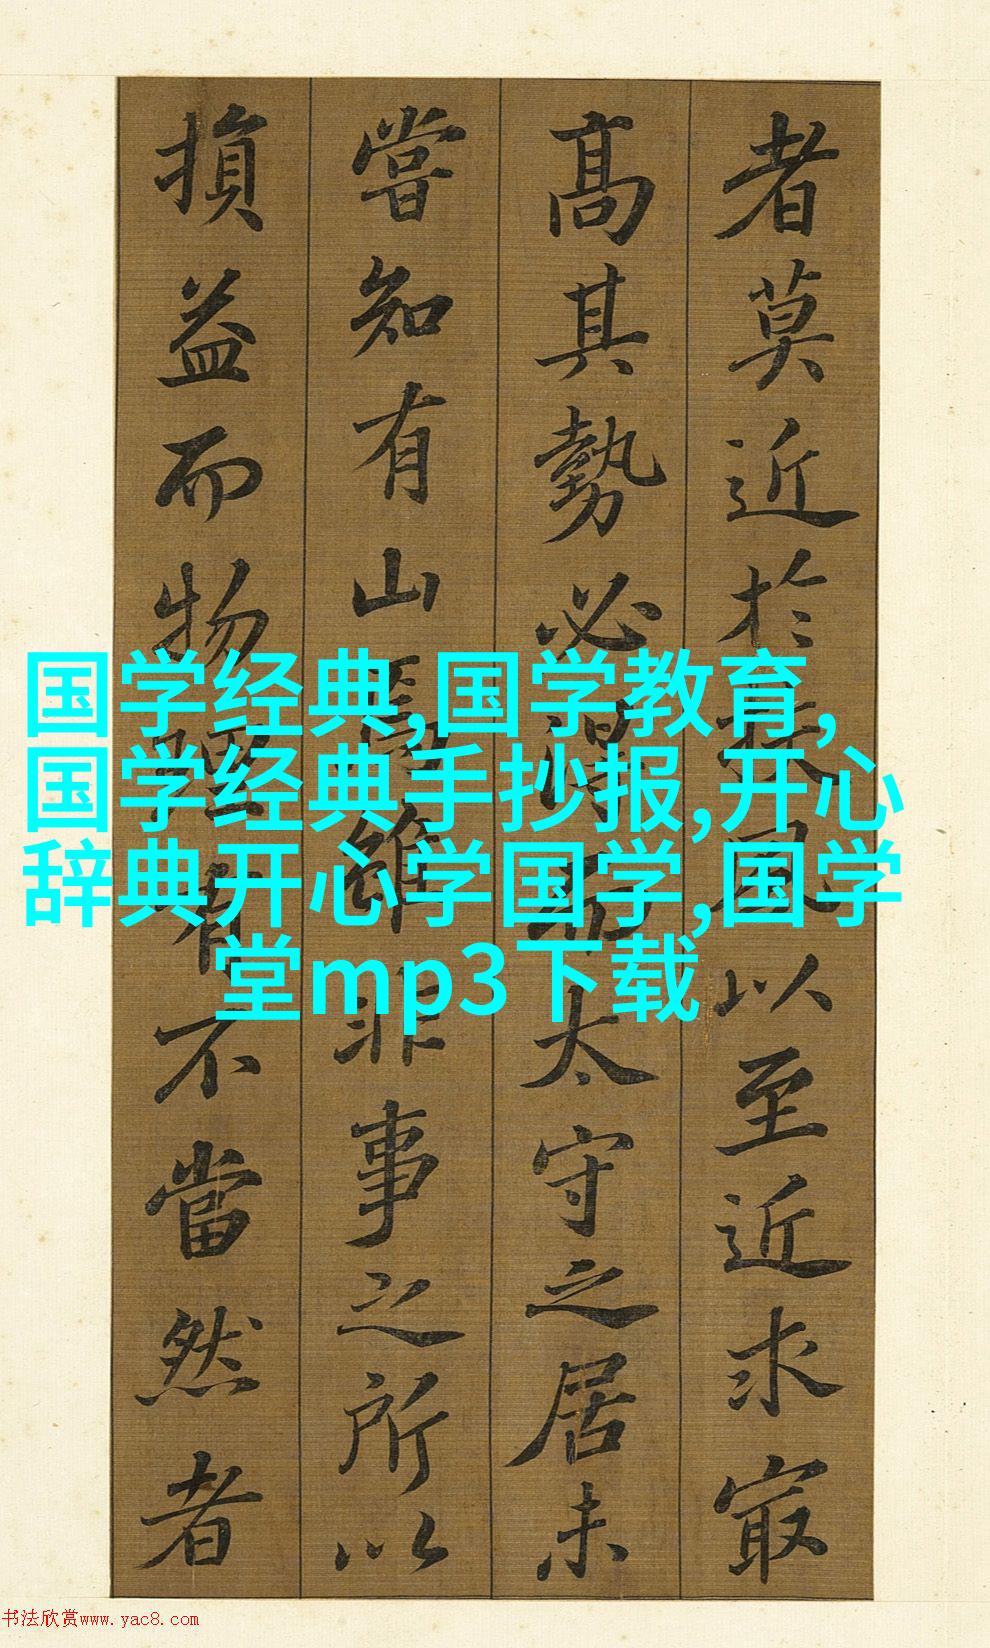 者莫近於扶風以至近求㝡
高其勢必得而太守之居未
嘗知有山焉雖非事之所以
損益而物理有不當然者
国学经典,国学教育,
国学经典手抄报,开心
辞典开心学国学,国学
堂mp3下载
书法欣赏www.yac8.com